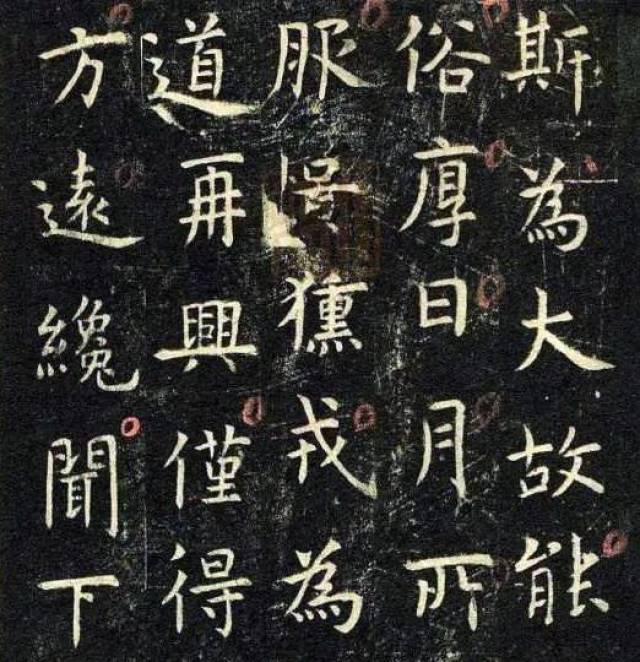 斯為大故能
俗厚日月所
服獯戎為
道再興僅得
方遠纔聞下